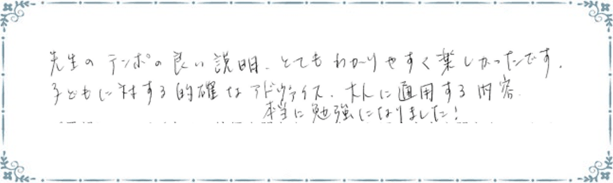 先生のテンポの良い説明、とてもわかりやすく楽しかったです。
子どもに対する的確なアドヴァイス、大人に適用する内容、
本当に勉強になりました!